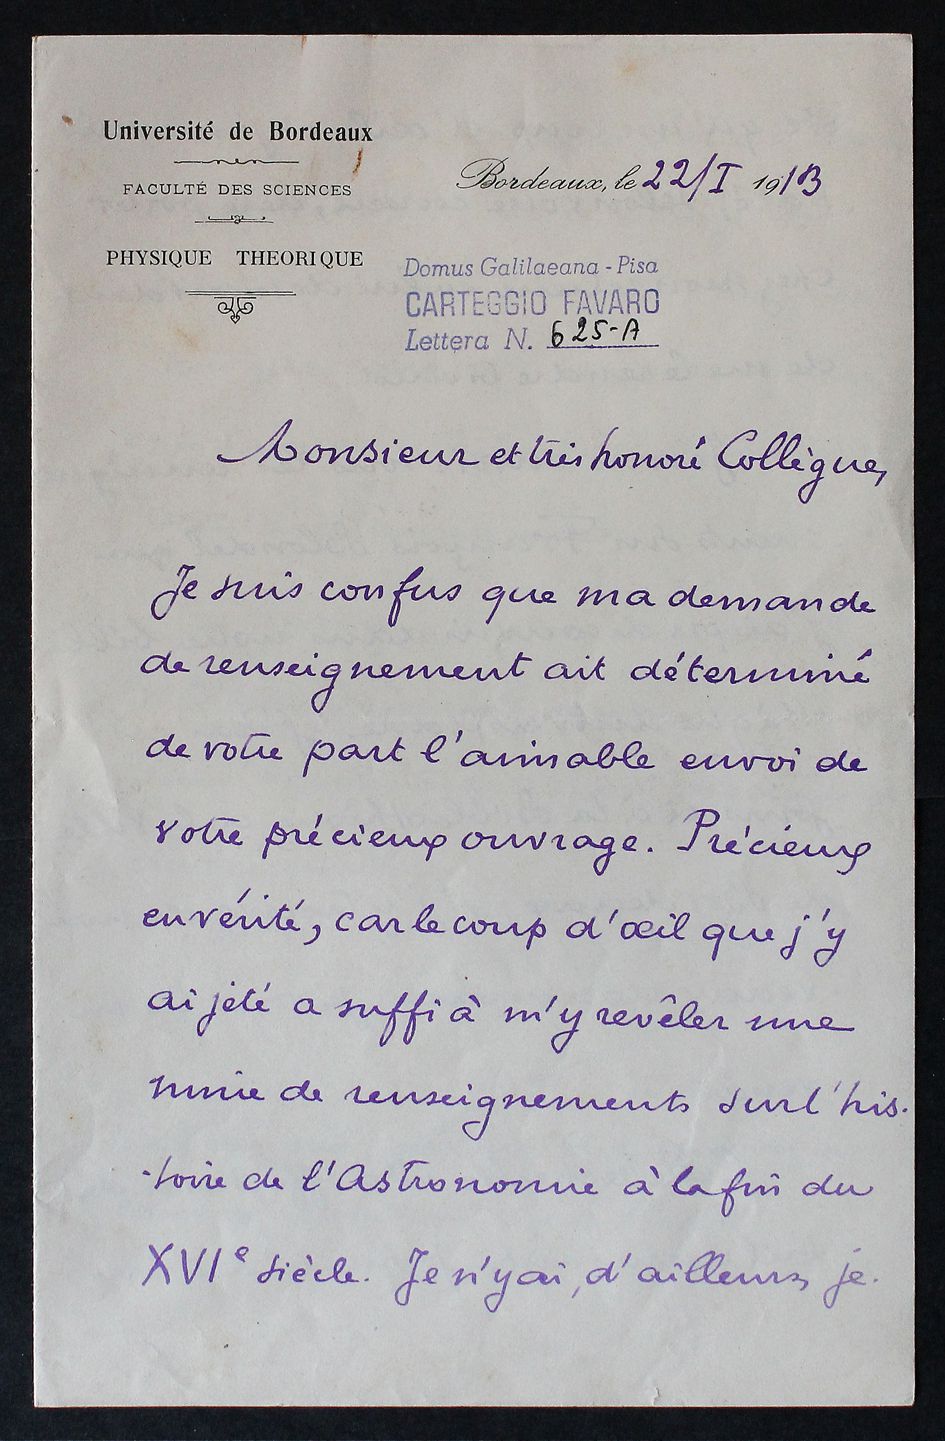 Université de Bordeaux
FACULTÉ DES SCIENCES
PHYSIQUE THEORIQUE
Bordeaux, le 22/I 1913
Domus Galilaeana - Pisa
CARTEGGIO FAVARO
Lettera N. 625-A
Monsieur et très honoré Collègue,
Je suis confus que ma demande
de renseignement ait déterminé
de votre part l'aimable envoi de
votre précieux ouvrage. Précieux
en vérité, car le coup d'œil que j'y
ai jeté a suffi à m'y revêler une
mine de renseignements sur l'his-
-toire de l'Astronomie à la fin du
XVIe siècle. Je n'y ai, d'ailleurs, je